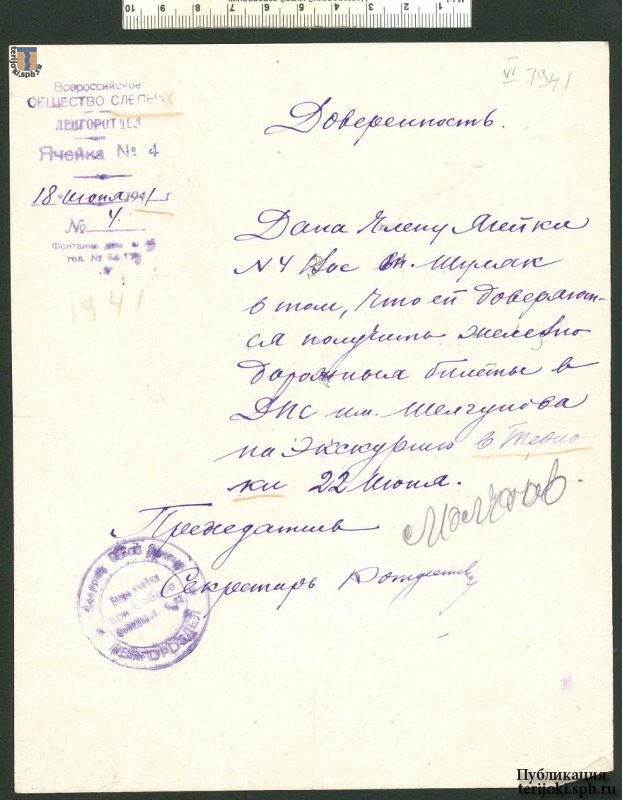 terijoki.spb.ru
Всероссийское
ОБЩЕСТВО СЛЕПЫХ
ЛЕНГОРОТДЕЛ
Ячейка № 4
18 июня 1941 г
№ 4.
Фонтанка
тел. №
1941
VI 1941
Доверенность.
Дана Члену Ячейки
N 4 Вос Шуляк
в том, что ей доверяют-
ся получить железно
дорожныя билеты в
ДПС им. Шелгунова
на экскурсию в Терио-
ки 22 июня.
Председатель
Секретарь
ЛЕНГОРОТДЕЛ
Публикация
terijoki.spb.ru